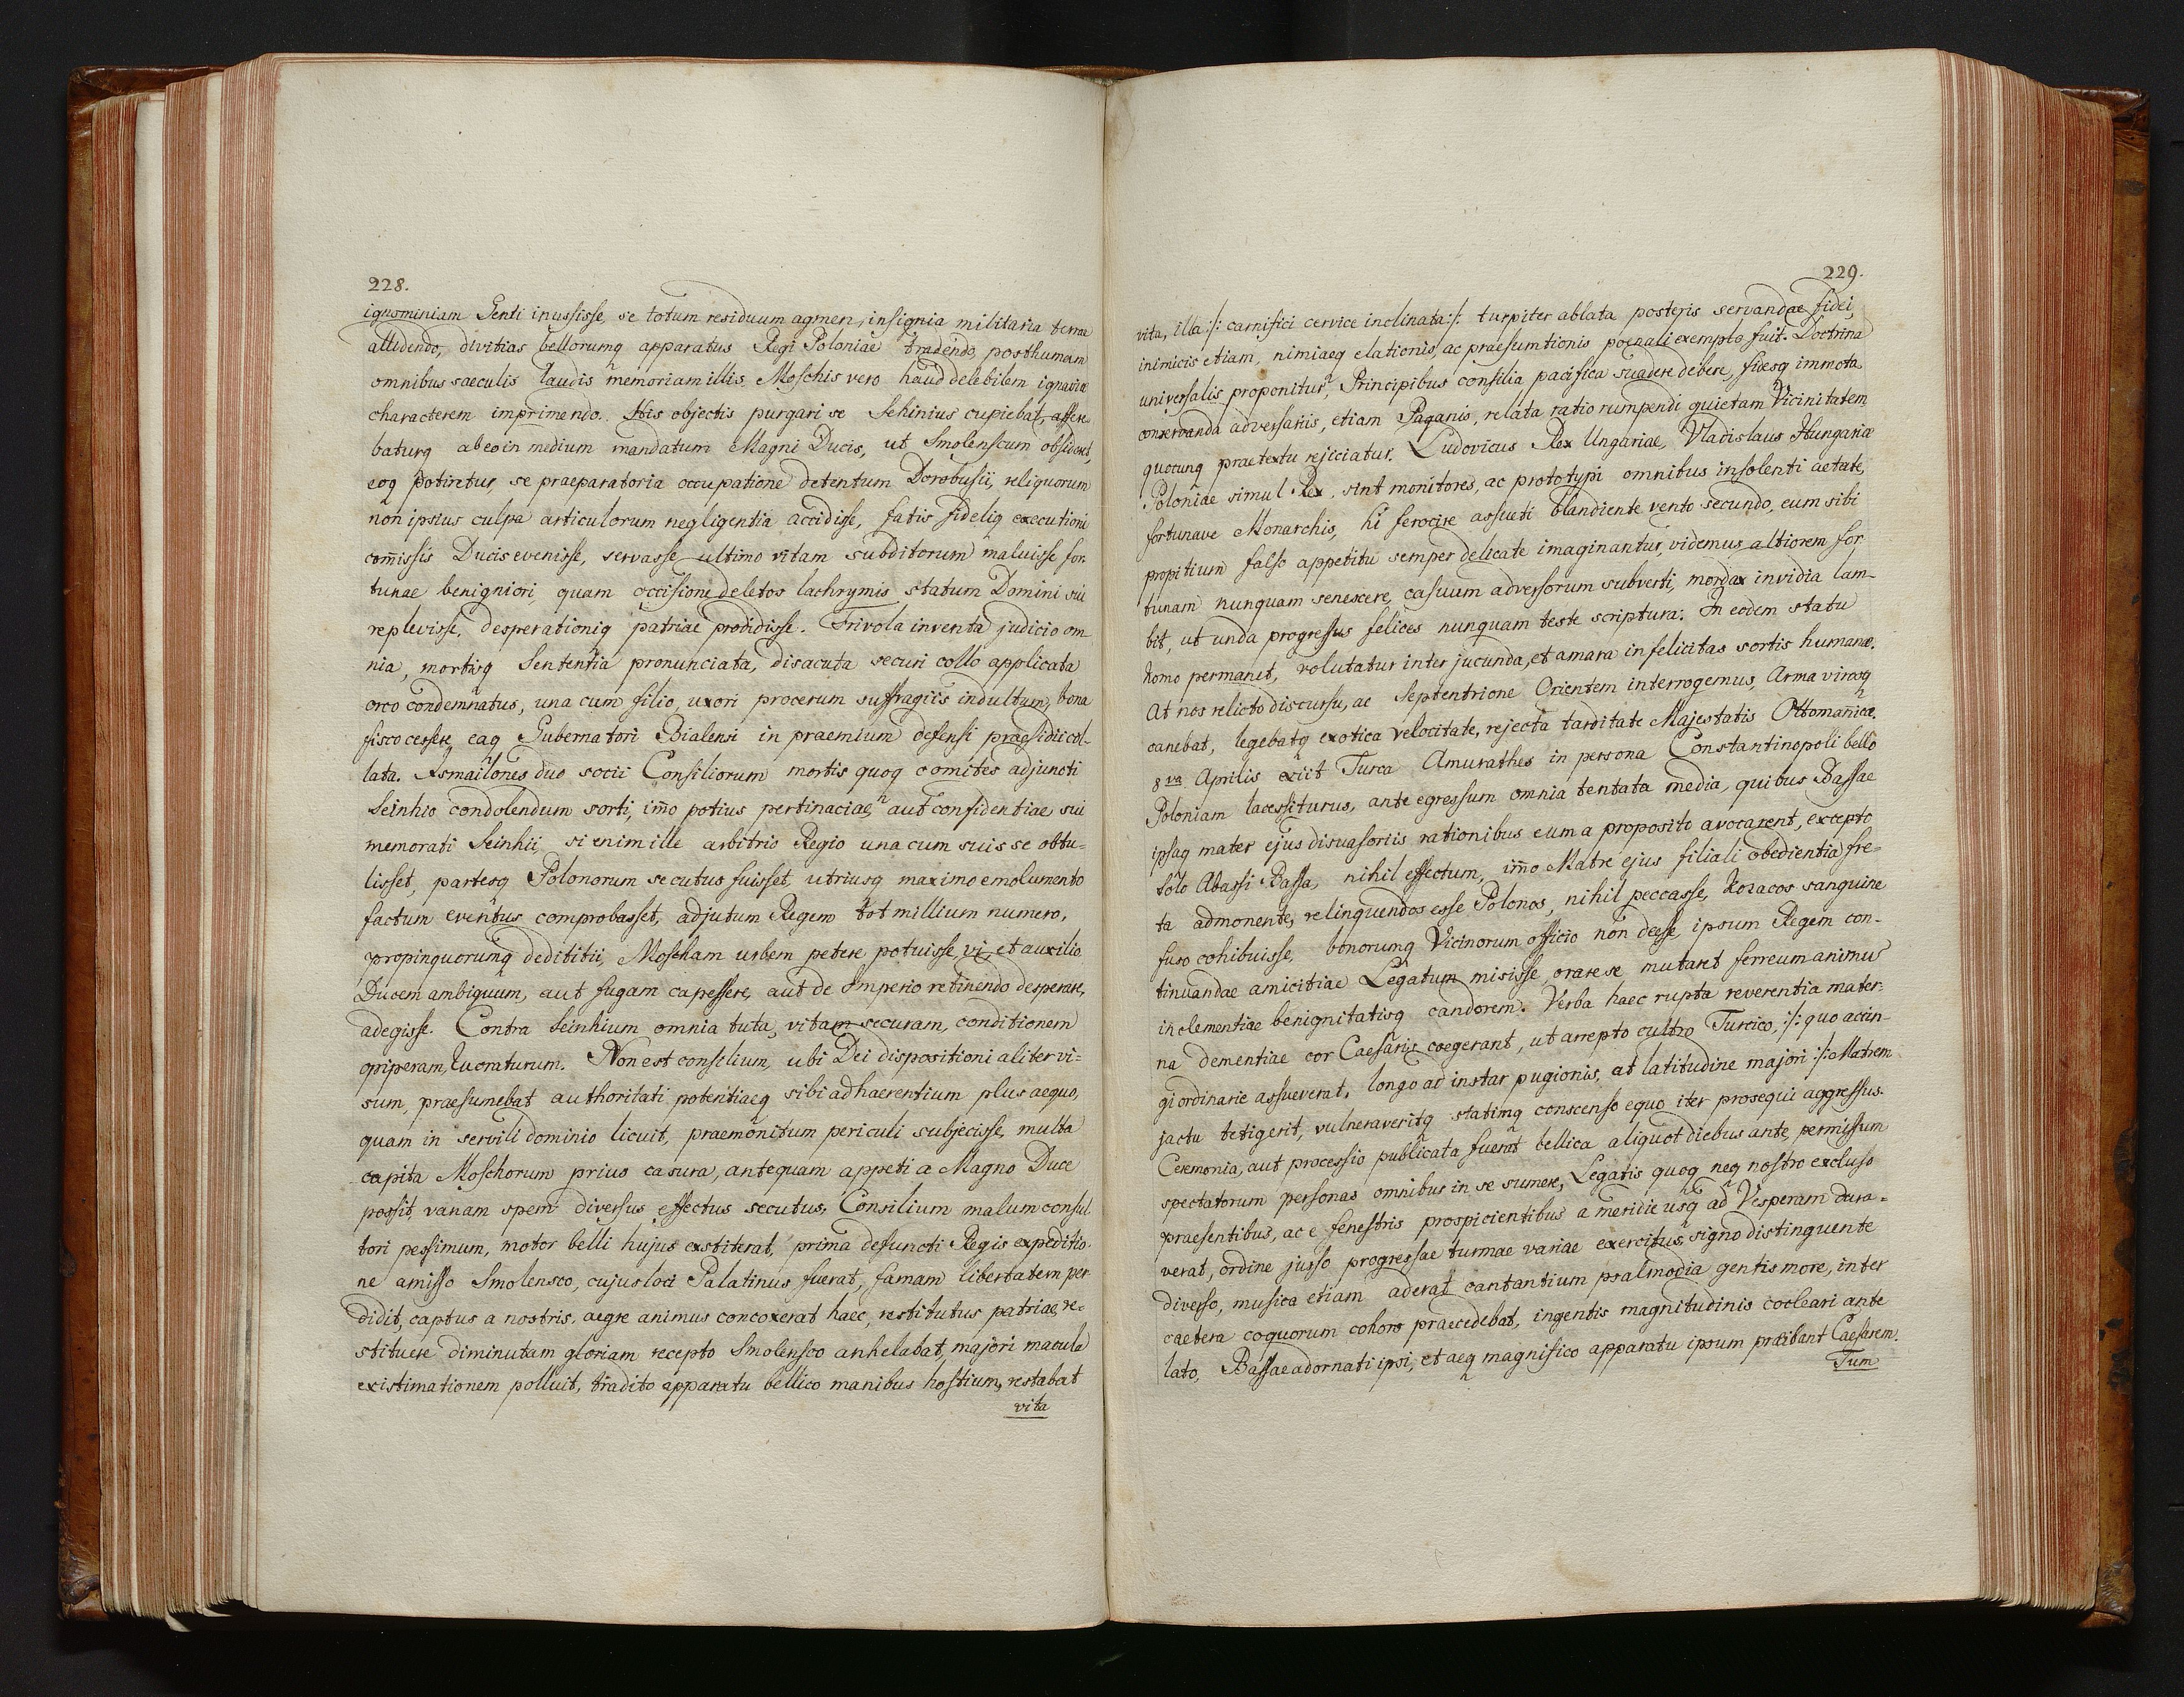 228.
ignominiam Genti inussisse, se totum residuum agmen, insignia militaria terrae
allidendo, divitias bellorumq apparatus Regi Poloniae tradendo, posthumam
omnibus saeculis laudis memoriam illis Moschis vero haud delebilem ignaviae
characterem imprimendo. His objectis purgari se Sehinius cupiebat, affere
baturq ab eo in medium mandatum Magni Ducis, ut Smolenscum obsideret,
eoq potiretur, se praeparatoria occupatione detentum Dorobusii, reliquorum
non ipsius culpa articulorum negligentia accidisse, fatis fideliq executioni
com̄issis Ducis evenisse, servasse ultimo vitam subditorum maluisse for-
tunae benigniori, quam occisione deletos lachrymis statum Domini sui
replevisse, desperationiq patriae prodidisse. Frivola inventa judicio om
nia, mortisq Sententia pronunciata, disacuta securi collo applicata
orco condemnatus, una cum filio, uxori procerum suffragiis indultum, bona
fisco cessere, eaq Gubernatori Bialensi in praemium defensi praesidii col-
lata. Asmailones duo socii Consiliorum mortis quoq comites adjuncti
Seinhio condolendum sorti, im̄o potius pertinaciae, aut confidentiae sui
memorati Seinhii, si enim ille arbitrio Regio una cum suis se obtu-
lisset, partesq Polonorum secutus fuisset, utriusq maximo emolumento
factum eventus comprobasset, adjutum Regem tot millium numero,
propinquorumq dedititii, Moscham urbem petere potuisse, vi, et auxilio
Ducem ambiguum, aut fugam capessere, aut de Imperio retinendo desperare,
adegisse. Contra Seinhium omnia tuta, vitam securam, conditionem
opiperam, lucraturum. Non est consilium, ubi Dei dispositioni aliter vi=
sum, praesumebat authoritati potentiaeq sibi adhaerentium plus aequo,
quam in servili dominio licuit, praemonitum periculi subjecisse, multa
capita Moschorum prius casura, antequam appeti a Magno Duce
possit, vanam spem diversus effectus secutus, Consilium malum consul
tori pessimum, motor belli hujus exstiterat, prima defuncti Regis expeditio-
ne amisso Smolensco, cujus loci Palatinus fuerat, famam libertatem per
didit, captus a nostris, aegre animus concoxerat haec, restitutus patriae, re-
stituere diminutam gloriam recepto Smolensco anhelabat, majori macula
existimationem polluit, tradito apparatu bellico manibus hostium, restabat
vita
229.
vita, illa :/: carnifici cervice inclinata :/: turpiter ablata posteris servandae fidei,
inimicis etiam, nimiaeq elationis, ac praesumtionis poenali exemplo fuit. Doctrina
universalis proponitur, Principibus consilia pacifica suadere debere, fidesq immota
conservanda adversariis, etiam Paganis, relata ratio rumpendi quietam Vicinitatem
quocunq praetextu rejiciatur. Ludovicus Rex Ungariae, Vladislaus Hungariae
Poloniae simul Rex, sint monitores, ac prototypi omnibus insolenti aetate,
fortunave Monarchis, hi ferocire assueti blandiente vento secundo, eum sibi
propitium falso appetitu semper delicate imaginantur, videmus altiorem for
tunam nunquam senescere, casuum adversorum subverti, mordax invidia lam-
bit, ut unda progressus felices nunquam teste scriptura: In eodem statu
homo permanet, volutatur inter jucunda, et amara infelicitas sortis humanae.
At nos relicto discursu, ac Septentrione Orientem interrogemus, Arma virosq
canebat, legebatq exotica velocitate, rejecta tarditate Majestatis Ottomanicae.
8va Aprilis exiit Turca Amurathes in persona Constantinopoli bello
Poloniam lacessiturus, ante egressum omnia tentata media, quibus Bassae
ipsaq mater ejus disuasoriis rationibus eum a proposito avocarent, excepto
solo Abassi Bassa, nihil effectum, im̄o Matre ejus filiali obedientia fre-
ta admonente, relinquendos esse Polonos, nihil peccasse, Kozacos sanguine
fuso cohibuisse, bonorumq Vicinorum officio non deesse, ipsum Regem con-
tinuandae amicitiae Legatum misisse, orare se mutaret ferreum animu
inclementiae benignitatisq candorem. Verba haec rupta reverentia mater-
na dementiae cor Caesaris coegerant, ut arrepto cultro Turcico, :/: quo accin-
gi ordinarie assueverat, longo ad instar pugionis, at latitudine majori :/: Matrem
jactu tetigerit, vulneraveritq statimq conscenso equo iter prosequi aggressus.
Ceremonia, aut processio publicata fuerat bellica aliquot diebus ante, permissum
spectatorum personas omnibus in se sumere, Legatis quoq neq nostro excluso
praesentibus, ac e fenestris prospicientibus a meridie usq ad Vesperam dura=
verat, ordine jusso progressae turmae variae exercitus, signo distinguente
diverso, musica etiam aderat cantantium psalmodia gentis more, inter
caetera coquorum cohors praecedebat, ingentis magnitudinis cocleari ante
lato, Bassae adornati ipsi, et aeq magnifico apparatu ipsum praeibant Caesarem.
Tum